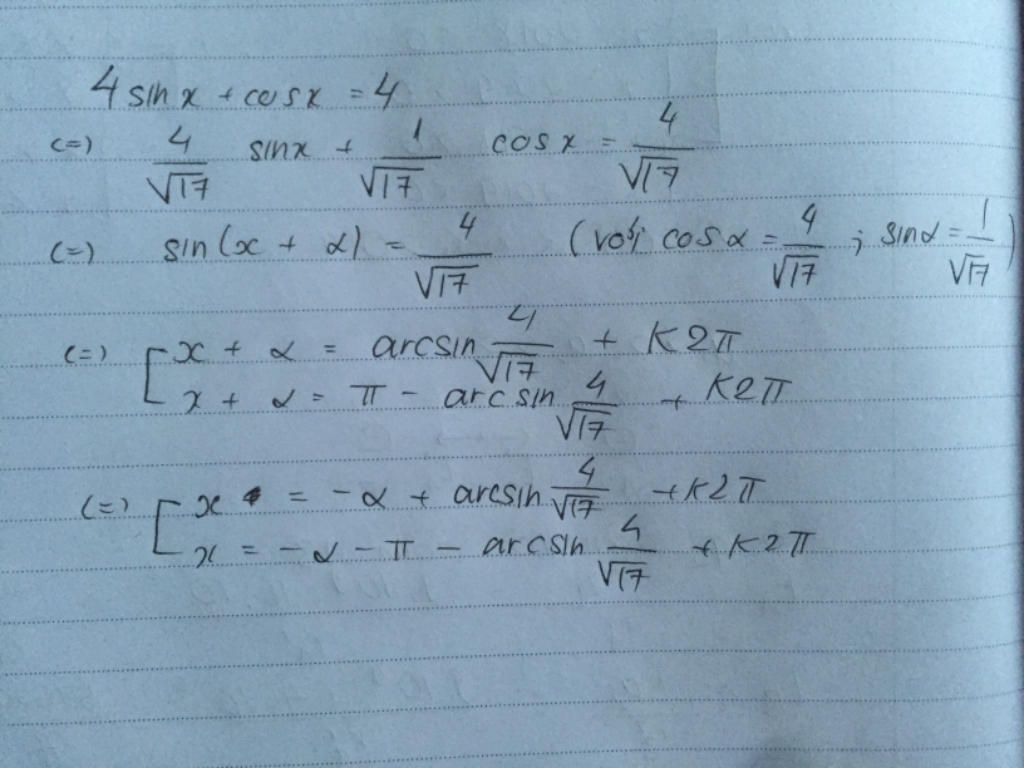 4 sin x + cos x = 4
(=) 4/√17 sin x + 1/√17 cos x = 4/√17
(=) sin(x + α) = 4/√17 (với cos α = 4/√17 ; sin α = 1/√17)
(=) [ x + α = arcsin 4/√17 + K2π
x + α = π - arcsin 4/√17 + K2π
(=) [ x = -α + arcsin 4/√17 + K2π
x = -α - π - arcsin 4/√17 + K2π